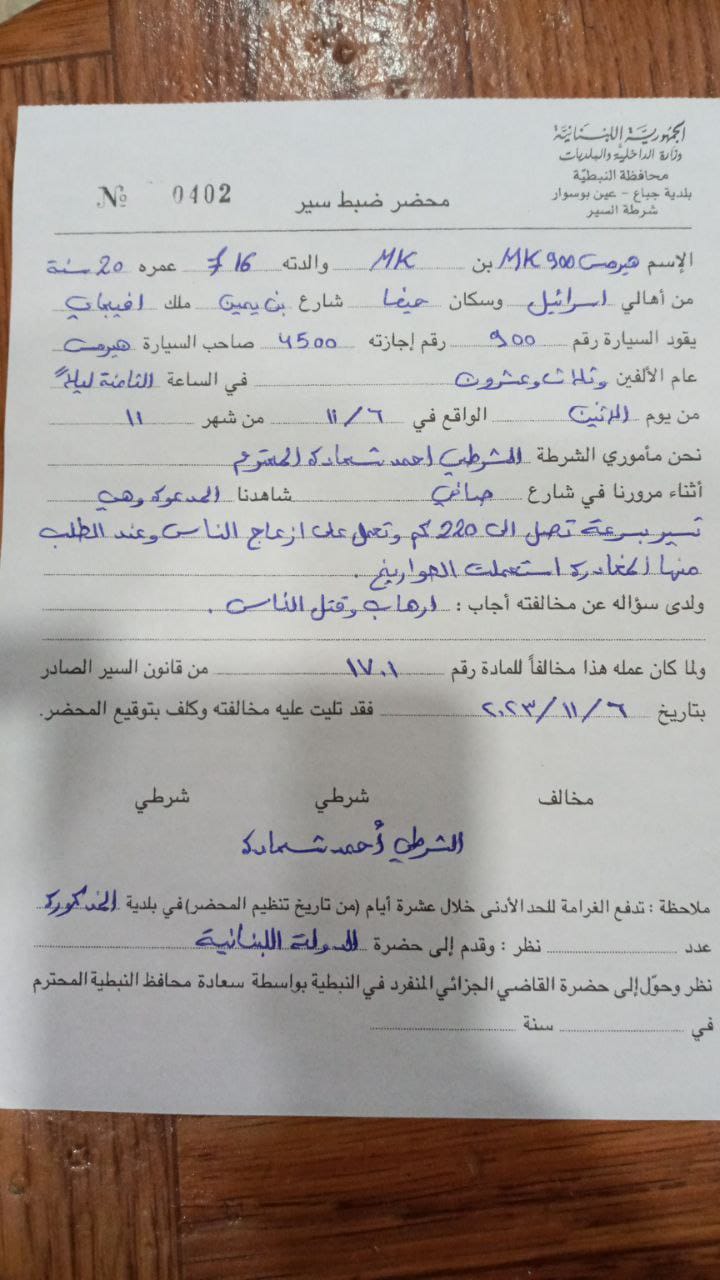 الجمهورية اللبنانية
وزارة الداخلية والبلديات
محافظة النبطية
بلدية جباع - عين بوسوار
شرطة السير
محضر ضبط سير
№ 0402
الإسم هيرمس MK 900 بن MK والدته 16 F عمره 20 سنة
من أهالي اسرائيل وسكان حيفا شارع بن يمين ملك افيخاي
يقود السيارة رقم 900 رقم إجازته 4500 صاحب السيارة هيرمس
عام الألفين وثلاث وعشرون في الساعة الثامنة ليلاً
من يوم الاثنين الواقع في ١١/٦ من شهر ١١
نحن مأموري الشرطة الشرطي احمد شحادة المحترم
أثناء مرورنا في شارع صافي شاهدنا المدعوة وهي
تسير بسرعة تصل الى 220 كم وتعمل على ازعاج الناس وعند الطلب
منها المغادرة استعملت الصواريخ.
ولدى سؤاله عن مخالفته أجاب : ارهاب وقتل الناس.
ولما كان عمله هذا مخالفاً للمادة رقم ١٧٠١ من قانون السير الصادر
بتاريخ ٢٠٢٣/١١/٦ فقد تليت عليه مخالفته وكلف بتوقيع المحضر.
مخالف شرطي شرطي
الشرطي أحمد شحادة
ملاحظة : تدفع الغرامة للحد الأدنى خلال عشرة أيام (من تاريخ تنظيم المحضر) في بلدية المذكورة
عدد نظر : وقدم إلى حضرة الدولة اللبنانية
نظر وحوّل إلى حضرة القاضي الجزائي المنفرد في النبطية بواسطة سعادة محافظ النبطية المحترم
في سنة